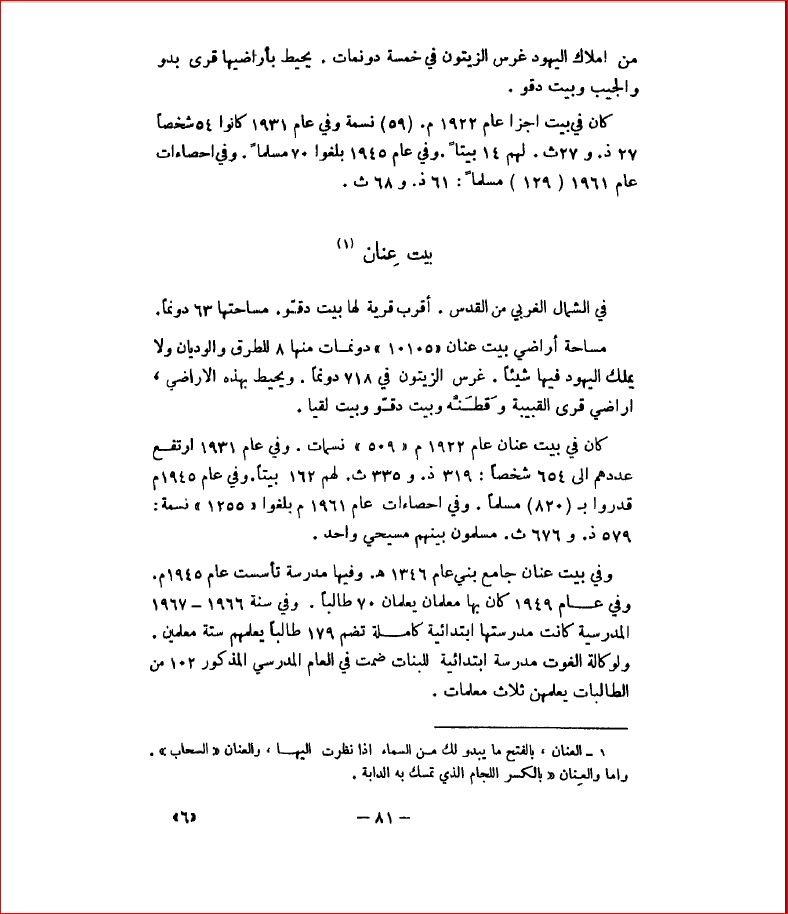 من املاك اليهود غرس الزيتون في خمسة دونمات . يحيط بأراضيها قرى بدو
والجيب وبيت دقو .
كان في بيت اجزا عام ١٩٢٢ م. (٥٩) نسمة وفي عام ١٩٣١ كانوا ٥٤ شخصاً
٢٧ ذ. و ٢٧ ث . لهم ١٤ بيتاً . وفي عام ١٩٤٥ بلغوا ٧٠ مسلماً . وفي احصاءات
عام ١٩٦١ ( ١٢٩ ) مسلماً : ٦١ ذ. و ٦٨ ث .
بيت عِنان (١)
في الشمال الغربي من القدس . أقرب قرية لها بيت دقّو. مساحتها ٦٣ دونماً.
مساحة أراضي بيت عنان «١٠١٠٥» دونمات منها ٨ للطرق والوديان ولا
يملك اليهود فيها شيئاً . غرس الزيتون في ٧١٨ دونماً . ويحيط بهذه الاراضي ،
اراضي قرى القبيبة وقَطَنّه وبيت دقّو وبيت لقيا .
كان في بيت عنان عام ١٩٢٢ م «٥٠٩» نسمات . وفي عام ١٩٣١ ارتفع
عددهم الى ٦٥٤ شخصاً : ٣١٩ ذ. و ٣٣٥ ث. لهم ١٦٢ بيتاً. وفي عام ١٩٤٥م
قدروا بـ (٨٢٠) مسلماً . وفي احصاءات عام ١٩٦١ م بلغوا «١٢٥٥» نسمة :
٥٧٩ ذ. و ٦٧٦ ث. مسلمون بينهم مسيحي واحد .
وفي بيت عنان جامع بني عام ١٣٤٦ هـ. وفيها مدرسة تأسست عام ١٩٤٥م.
وفي عـــام ١٩٤٩ كان بها معلمان يعلمان ٧٠ طالباً . وفي سنة ١٩٦٦ – ١٩٦٧
المدرسية كانت مدرستها ابتدائية كامـــلة تضم ١٧٩ طالباً يعلمهم ستة معلمين .
ولوكالة الغوث مدرسة ابتدائية للبنات ضمت في العام المدرسي المذكور ١٠٢ من
الطالبات يعلمهن ثلاث معلمات .
١ – العنان ، بالفتح ما يبدو لك مـن السماء اذا نظرت اليهـا ، والعنان «السحاب» .
واما والعِنان « بالكسر اللجام الذي تمسك به الدابة .
– ٨١ –
«٦»